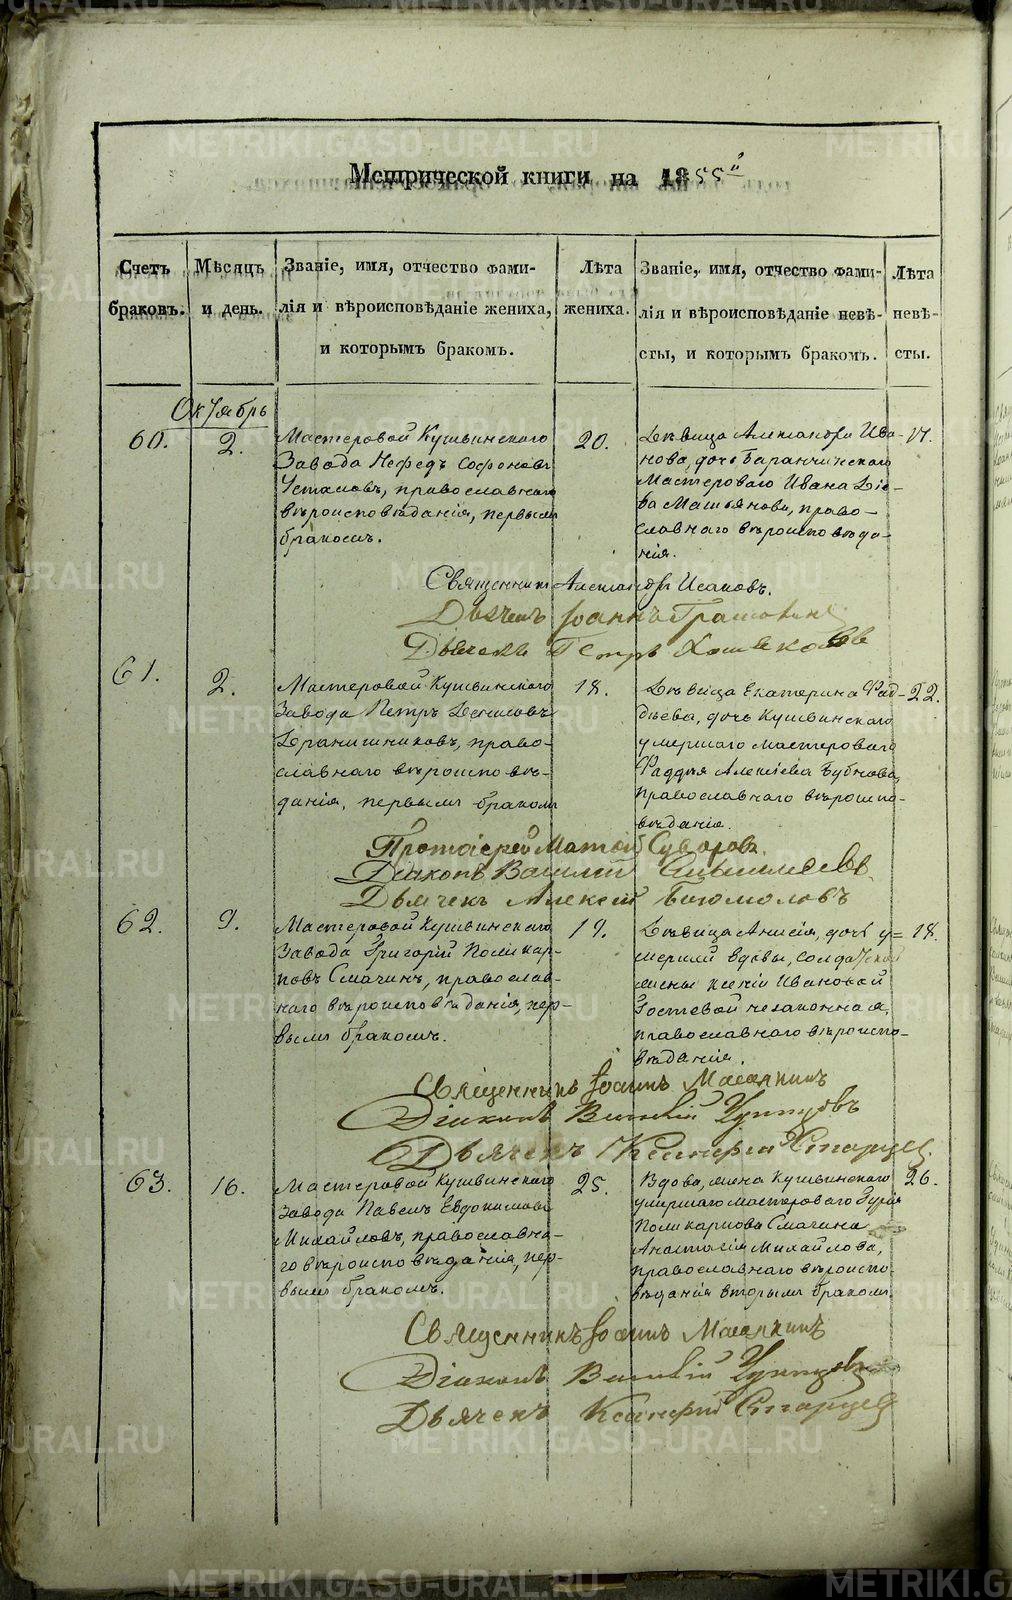 Метрической книги на 1855й
Счетъ браковъ.
Мѣсяцъ и день.
Званіе, имя, отчество фами-
лія и вѣроисповѣданіе жениха,
и которымъ бракомъ.
Лѣта жениха.
Званіе, имя, отчество фами-
лія и вѣроисповѣданіе невѣ-
сты, и которымъ бракомъ.
Лѣта невѣ-
сты.
Октябрь
60.
2.
Мастеровой Кушвинскаго
Завода Нефедъ Софоновъ
православнаго
вѣроисповѣданія, первымъ
бракомъ.
20.
Дѣвица Александра Ива-
нова, дочь Баранчинскаго
Мастероваго Ивана
право-
славнаго вѣроисповѣда-
нія.
17.
Священникъ Александръ Исаковъ.
Дьячекъ Іоаннъ
Дьячекъ Петръ
61.
2.
Мастеровой Кушвинскаго
Завода Петръ Денисовъ
Дранишниковъ, право-
славнаго вѣроисповѣ-
данія, первымъ бракомъ
18.
Дѣвица Екатерина Фад-
дѣева, дочь Кушвинскаго
умершаго мастероваго
Фаддѣя Алексѣева Бубнова,
православнаго вѣроиспо-
вѣданія.
22.
Протоіерей Матѳій Суворовъ.
Діаконъ Василій
Дьячекъ Алексій Богомоловъ
62.
9.
Мастеровой Кушвинскаго
Завода Григорій Поликар-
повъ Смагинъ, православ-
наго вѣроисповѣданія, пер-
вымъ бракомъ.
19.
Дѣвица Анисія, дочь у=
мершей вдовы, солдатской
жены Ксеніи Ивановой
Гостевой незаконная,
православнаго вѣроиспо-
вѣданія.
18.
Священникъ Іоаннъ
Діаконъ Василій
Дьячекъ Ксанфій Старцев
63.
16.
Мастеровой Кушвинскаго
Завода Павелъ Евдокимовъ
Михайловъ, православна-
го вѣроисповѣданія, пер-
вымъ бракомъ.
25.
Вдова, жена Кушвинскаго
умершаго мастероваго Гурія
Поликарпова Смагина
Анастасія Михайлова,
православнаго вѣроиспо-
вѣданія вторымъ бракомъ.
26.
Священникъ Іоаннъ
Діаконъ Василій
Дьячекъ Ксанфій Старцев
METRIKI.GASO-URAL.RU